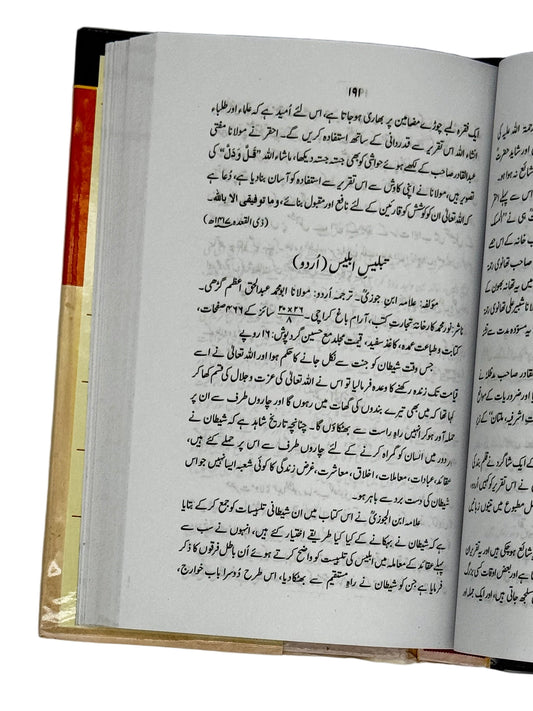 ۱۹۱
ایک فقرہ لمبے چوڑے مضامین پر بھاری ہوجاتا ہے، اس لئے اُمید ہے کہ علماء اور طلباء
انشاء اللہ اس تقریر سے قدردانی کے ساتھ استفادہ کریں گے۔ احقر نے مولانا مفتی
عبدالقادر صاحب کے لکھے ہوئے حواشی کو بھی جستہ جستہ دیکھا، ماشاء اللہ "قَلَّ وَدَلَّ" کی
تصویر ہیں، مولانا نے اپنی کاوش سے اس تقریر سے استفادہ کو آسان بنادیا ہے، دُعا ہے
کہ اللہ تعالیٰ ان کو کوشش کو قارئین کے لئے نافع اور مقبول بنائے، وما توفیقی الا باللہ۔
(ذی القعدہ ۱۴۱۷ھ)
تبلیسِ ابلیس (اُردو)
مؤلفہ: علامہ ابنِ جوزیؒ۔ ترجمہ اُردو: مولانا ابومحمد عبدالحق اعظم گڑھی۔
ناشر: نور محمد کارخانہ تجارتِ کتب، آرام باغ کراچی۔ ۲۰×۲۶/۸ سائز کے ۴۶۶ صفحات،
کتابت و طباعت عمدہ، کاغذ سفید، قیمت مجلد مع حسین گردپوش: ۱۶ روپے
جس وقت شیطان کو جنت سے نکل جانے کا حکم ہوا اور اللہ تعالیٰ نے اسے
قیامت تک زندہ رکھنے کا وعدہ فرمالیا تو اس نے اللہ تعالیٰ کی عزت و جلال کی قسم کھا کر
کہا تھا کہ میں بھی تیرے بندوں کی گھات میں رہوں گا اور چاروں طرف سے ان پر
حملہ آور ہوکر انہیں راہِ راست سے بھٹکاؤں گا۔ چنانچہ تاریخ شاہد ہے کہ شیطان نے
ہر دور میں انسان کو گمراہ کرنے کے لئے چاروں طرف سے اس پر حملے کئے ہیں،
عقائد، عبادات، معاملات، اخلاق، معاشرت، غرض زندگی کا کوئی شعبہ ایسا نہیں جو اس
شیطان کی دَست برد سے باہر ہو۔
علامہ ابن الجوزیؒ نے اس کتاب میں ان شیطانی تلبیسات کو جمع کرکے بتایا
ہے کہ شیطان نے بہکانے کے کیا کیا طریقے اختیار کئے ہیں، انہوں نے سب سے
پہلے عقائد کے معاملہ میں ابلیس کی تلبیست کو واضح کرتے ہوئے اُن باطل فرقوں کا ذکر
فرمایا ہے جن کو شیطان نے راہِ مستقیم سے بھٹکادیا، اس طرح دُوسرا باب خوارج،